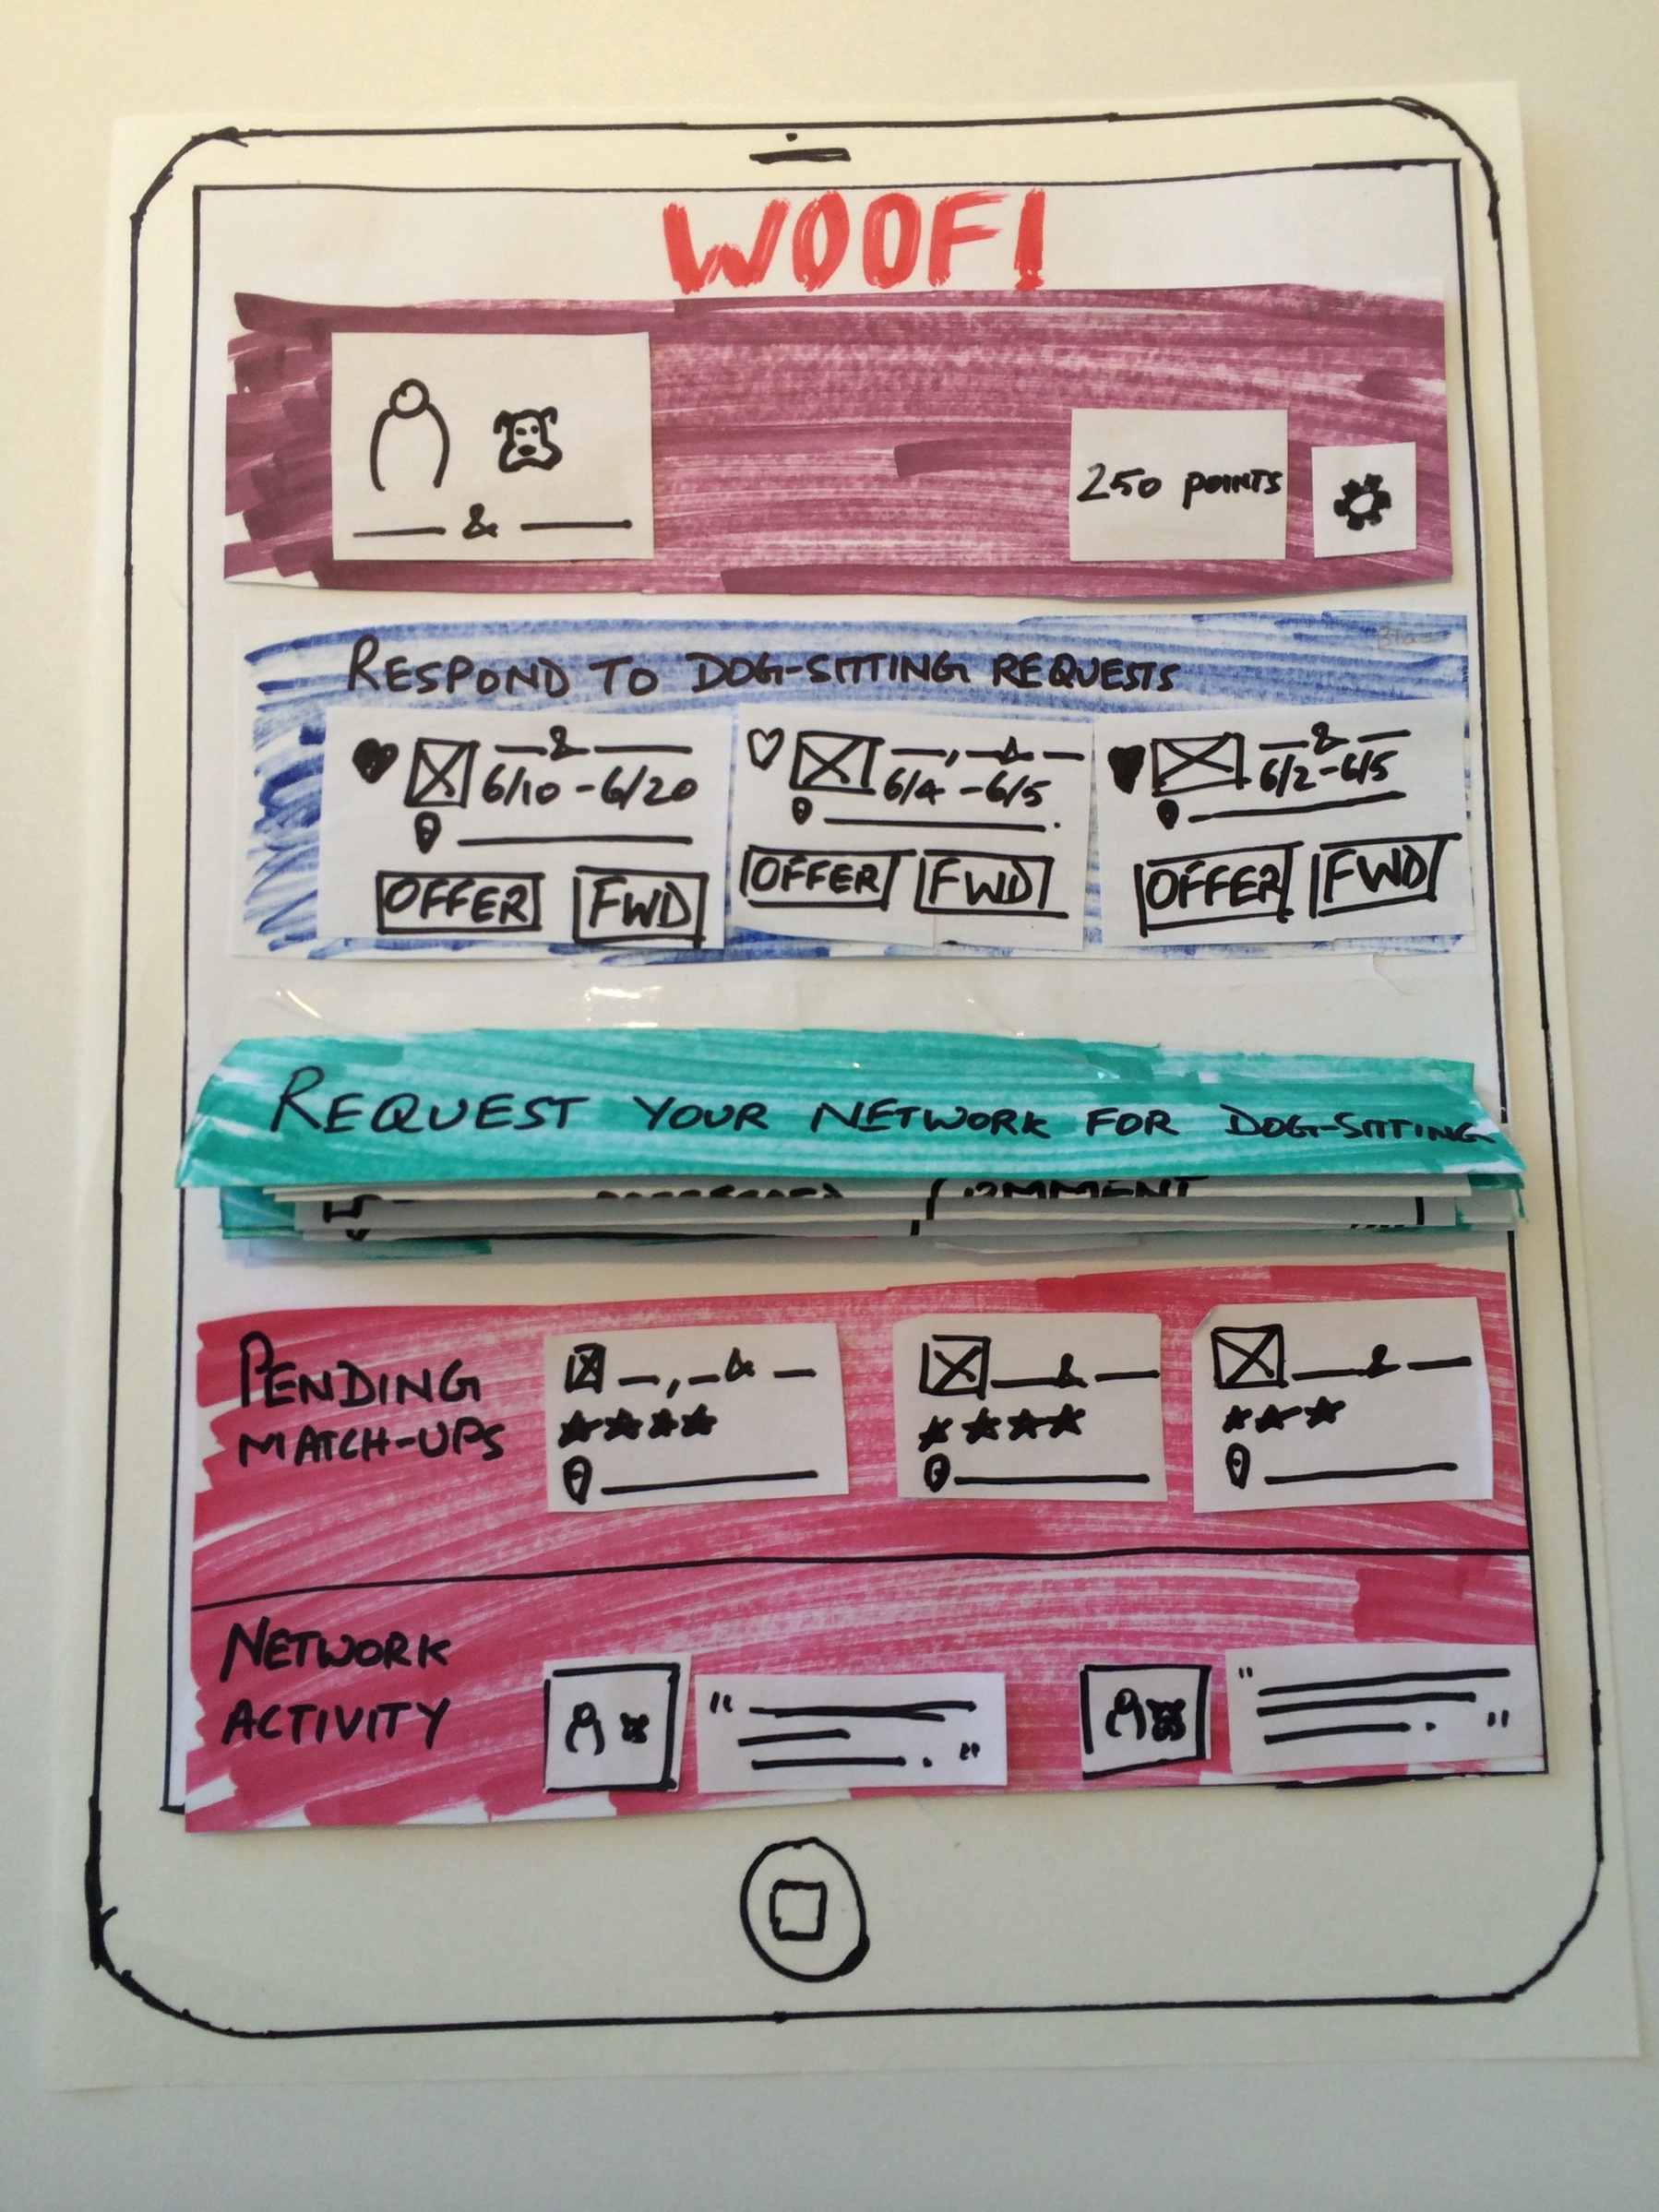 WOOF!
&
250 POINTS
RESPOND TO DOG-SITTING REQUESTS
&
6/10 - 6/20
OFFER FWD
, &
6/4 - 6/5
OFFER FWD
&
6/2 - 6/5
OFFER FWD
REQUEST YOUR NETWORK FOR DOG-SITTING
COMMENT
PENDING
MATCH-UPS
, &
&
&
NETWORK
ACTIVITY
" . "
" . "